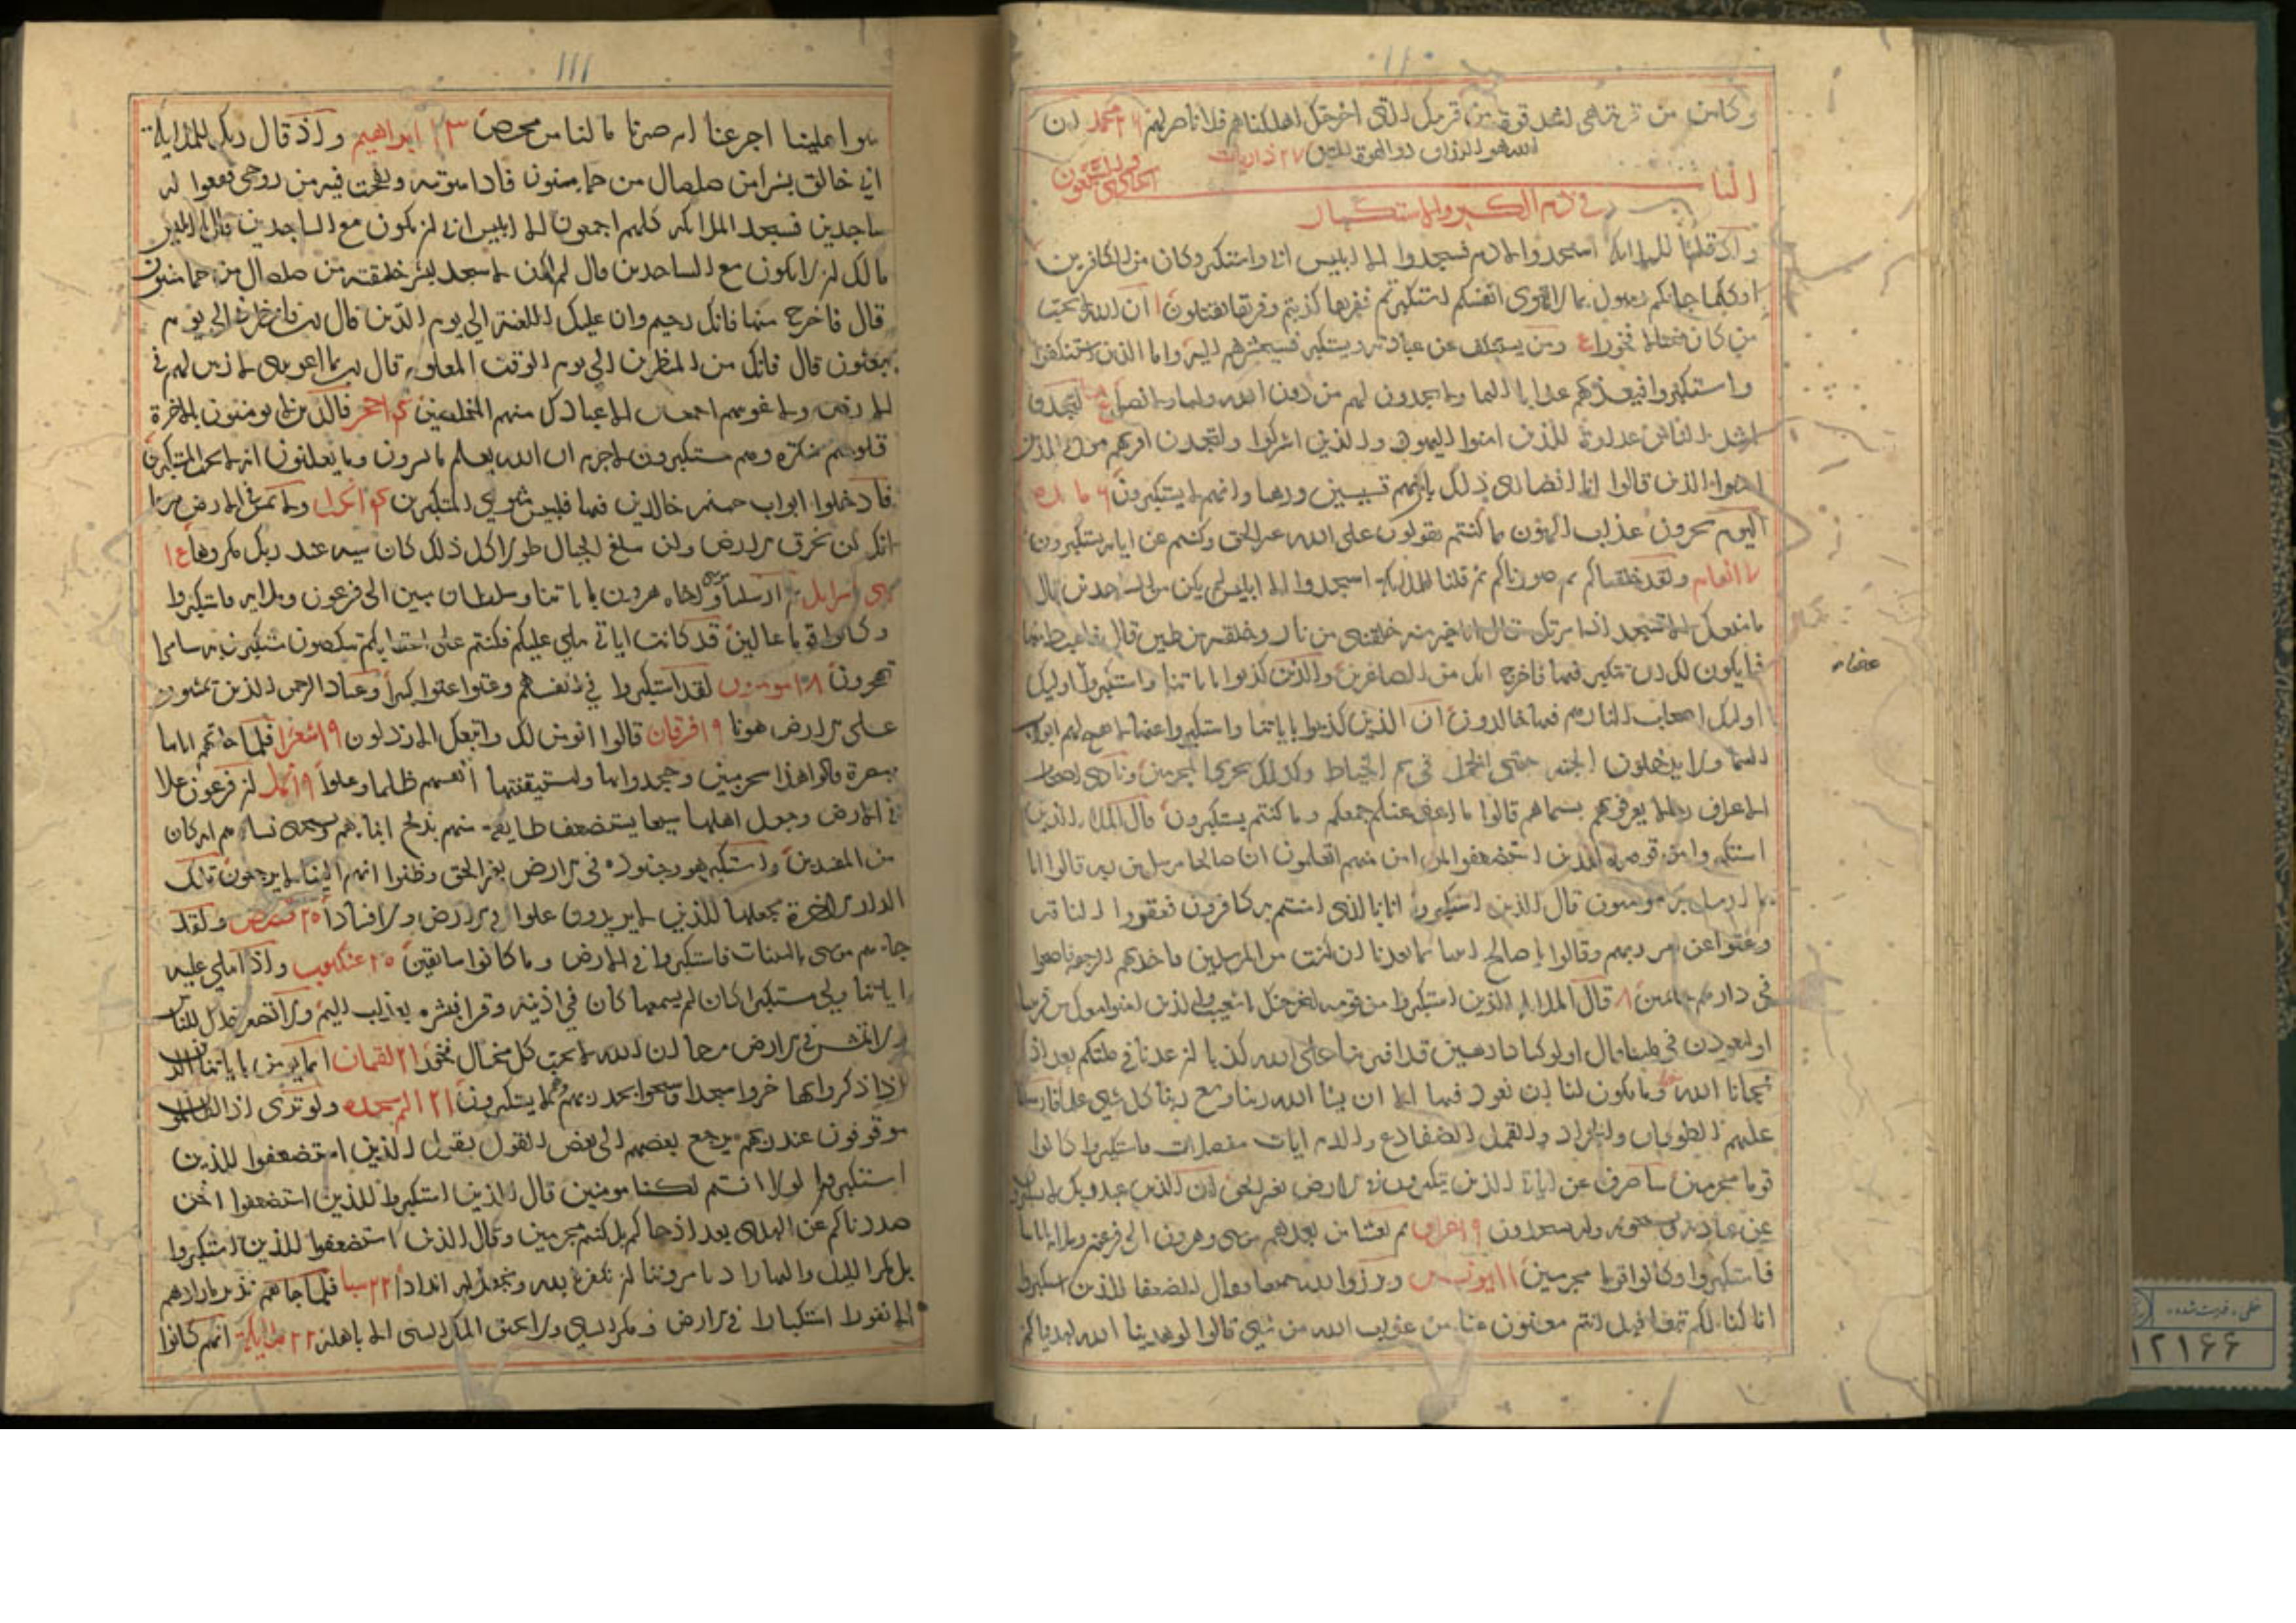 ١١٠
وكاين من قرية هي اشد قوة من قريتك التي اخرجتك اهلكناهم فلا ناصر لهم ٢٦ محمد ان
الله هو الرزاق ذو القوة المتين ٢٧ ذاريات
الباب الحادي والتسعون
في ذم الكبر والاستكبار
واذ قلنا للملائكة اسجدوا لادم فسجدوا الا ابليس ابى واستكبر وكان من الكافرين
اوكلما جاءكم رسول بما لا تهوى انفسكم استكبرتم ففريقا كذبتم وفريقا تقتلون ١ ان الله لا يحب
من كان مختالا فخورا ومن يستنكف عن عبادته ويستكبر فسيحشرهم اليه واما الذين استنكفوا
واستكبروا فيعذبهم عذابا اليما ولا يجدون لهم من دون الله وليا ولا نصيرا لتجدن
اشد الناس عداوة للذين امنوا اليهود والذين اشركوا ولتجدن اقربهم مودة للذين
امنوا الذين قالوا انا نصارى ذلك بان منهم قسيسين ورهبانا وانهم لا يستكبرون ٦ مائده
اليوم تجزون عذاب الهون بما كنتم تقولون على الله غير الحق وكنتم عن اياته تستكبرون
٧ انعام ولقد خلقناكم ثم صورناكم ثم قلنا للملائكة اسجدوا الا ابليس لم يكن من الساجدين قال
ما منعك الا تسجد اذ امرتك قال انا خير منه خلقتني من نار وخلقته من طين قال فاهبط منها
فما يكون لك ان تتكبر فيها فاخرج انك من الصاغرين والذين كذبوا باياتنا واستكبروا اوليك
عنها
اوليك اصحاب النار هم فيها خالدون ان الذين كذبوا باياتنا واستكبروا عنها لا تفتح لهم ابواب
السما ولا يدخلون الجنة حتى الجمل في سم الخياط وكذلك نجزي المجرمين ونادى اصحاب
الاعراف رجالا يعرفونهم بسيماهم قالوا ما اغنى عنكم جمعكم وما كنتم تستكبرون قال الملا الذين
استكبروا من قومه للذين استضعفوا لمن امن منهم اتعلمون ان صالحا مرسل من ربه قالوا انا
بما ارسل به مومنون قال الذين استكبروا انا بالذي امنتم به كافرون فعقروا الناقة
وعتوا عن امر ربهم وقالوا يا صالح ائتنا بما تعدنا ان كنت من المرسلين فاخذتهم الرجفة فاصبحوا
في دارهم جاثمين ٨ قال الملا الذين استكبروا من قومه لنخرجنك يا شعيب والذين امنوا معك من قريتنا
او لتعودن في ملتنا قال اولو كنا كارهين قد افترينا على الله كذبا ان عدنا في ملتكم بعد اذ
نجانا الله وما يكون لنا ان نعود فيها الا ان يشا الله ربنا وسع ربنا كل شي علما فارسلنا
عليهم الطوفان والجراد والقمل والضفادع والدم ايات مفصلات فاستكبروا وكانوا
قوما مجرمين ساصرف عن اياتي الذين يتكبرون في الارض بغير الحق ان الذين عند ربك لا يستكبرون
عن عبادته ويسبحونه وله يسجدون ٩ اعراف ثم بعثنا من بعدهم موسى وهرون الى فرعون وملايه باياتنا
فاستكبروا وكانوا قوما مجرمين ١١ يونس وبرزوا لله جميعا فقال الضعفا للذين استكبروا
انا كنا لكم تبعا فهل انتم مغنون عنا من عذاب الله من شي قالوا لو هدينا الله لهديناكم
١١١
سوا علينا اجزعنا ام صبرنا ما لنا من محيص ١٣ ابراهيم واذ قال ربك للملايكة
اني خالق بشرا من صلصال من حما مسنون فاذا سويته ونفخت فيه من روحي فقعوا له
ساجدين فسجد الملايكه كلهم اجمعون الا ابليس ابى ان يكون مع الساجدين قال يا ابليس
مالك ان لا تكون مع الساجدين قال لم اكن لاسجد لبشر خلقته من صلصال من حما مسنون
قال فاخرج منها فانك رجيم وان عليك اللعنة الى يوم الدين قال رب فانظرني الى يوم
يبعثون قال فانك من المنظرين الى يوم الوقت المعلوم قال رب بما اغويتني لازينن لهم في
الارض ولاغوينهم اجمعين الا عبادك منهم المخلصين حجر فالذين لا يومنون بالاخرة
قلوبهم منكرة وهم مستكبرون لا جرم ان الله يعلم ما يسرون وما يعلنون انه لا يحب المستكبرين
فادخلوا ابواب جهنم خالدين فيها فلبيس مثوى المتكبرين نحل ولا تمش في الارض مرحا
انك لن تخرق الارض ولن تبلغ الجبال طولا كل ذلك كان سيه عند ربك مكروها
بني اسرايل ثم ارسلنا موسى واخاه هرون باياتنا وسلطان مبين الى فرعون وملايه فاستكبروا
وكانوا قوما عالين قد كانت اياتي تتلى عليكم فكنتم على اعقابكم تنكصون مستكبرين به سامرا
تهجرون ١٨ مومنون لقد استكبروا في انفسهم وعتوا عتوا كبيرا وعباد الرحمن الذين يمشون
على الارض هونا ١٩ فرقان قالوا انومن لك واتبعك الارذلون ١٩ شعرا فلما جاتهم اياتنا
مبصرة قالوا هذا سحر مبين وجحدوا بها واستيقنتها انفسهم ظلما وعلوا ١٩ نمل ان فرعون علا
في الارض وجعل اهلها شيعا يستضعف طايفة منهم يذبح ابناءهم ويستحيي نساءهم انه كان
من المفسدين واستكبر هو وجنوده في الارض بغير الحق وظنوا انهم الينا لا يرجعون تلك
الدار الاخرة نجعلها للذين لا يريدون علوا في الارض ولا فسادا ٢٥ قصص ولقد
جاءهم موسى بالبينات فاستكبروا في الارض وما كانوا سابقين ٢٥ عنكبوت واذا تتلى عليه
اياتنا ولى مستكبرا كان لم يسمعها كان في اذنيه وقرا فبشره بعذاب اليم ولا تصعر خدك للناس
ولا تمش في الارض مرحا ان الله لا يحب كل مختال فخور ٢١ لقمان انما يومن باياتنا الذين
اذا ذكروا بها خروا سجدا وسبحوا بحمد ربهم وهم لا يستكبرون ٢١ الم سجده ولو ترى اذ الظالمون
موقوفون عند ربهم يرجع بعضهم الى بعض القول يقول الذين استضعفوا للذين
استكبروا لولا انتم لكنا مومنين قال الذين استكبروا للذين استضعفوا انحن
صددناكم عن الهدى بعد اذ جاكم بل كنتم مجرمين وقال الذين استضعفوا للذين استكبروا
بل مكر الليل والنهار اذ تامروننا ان نكفر بالله ونجعل له اندادا ٢٢ سبا فلما جاهم نذير ما زادهم
الا نفورا استكبارا في الارض ومكر السيي ولا يحيق المكر السيي الا باهله ٢٢ ملايكة انهم كانوا
خطى فهرست شده
١٢١٦٦